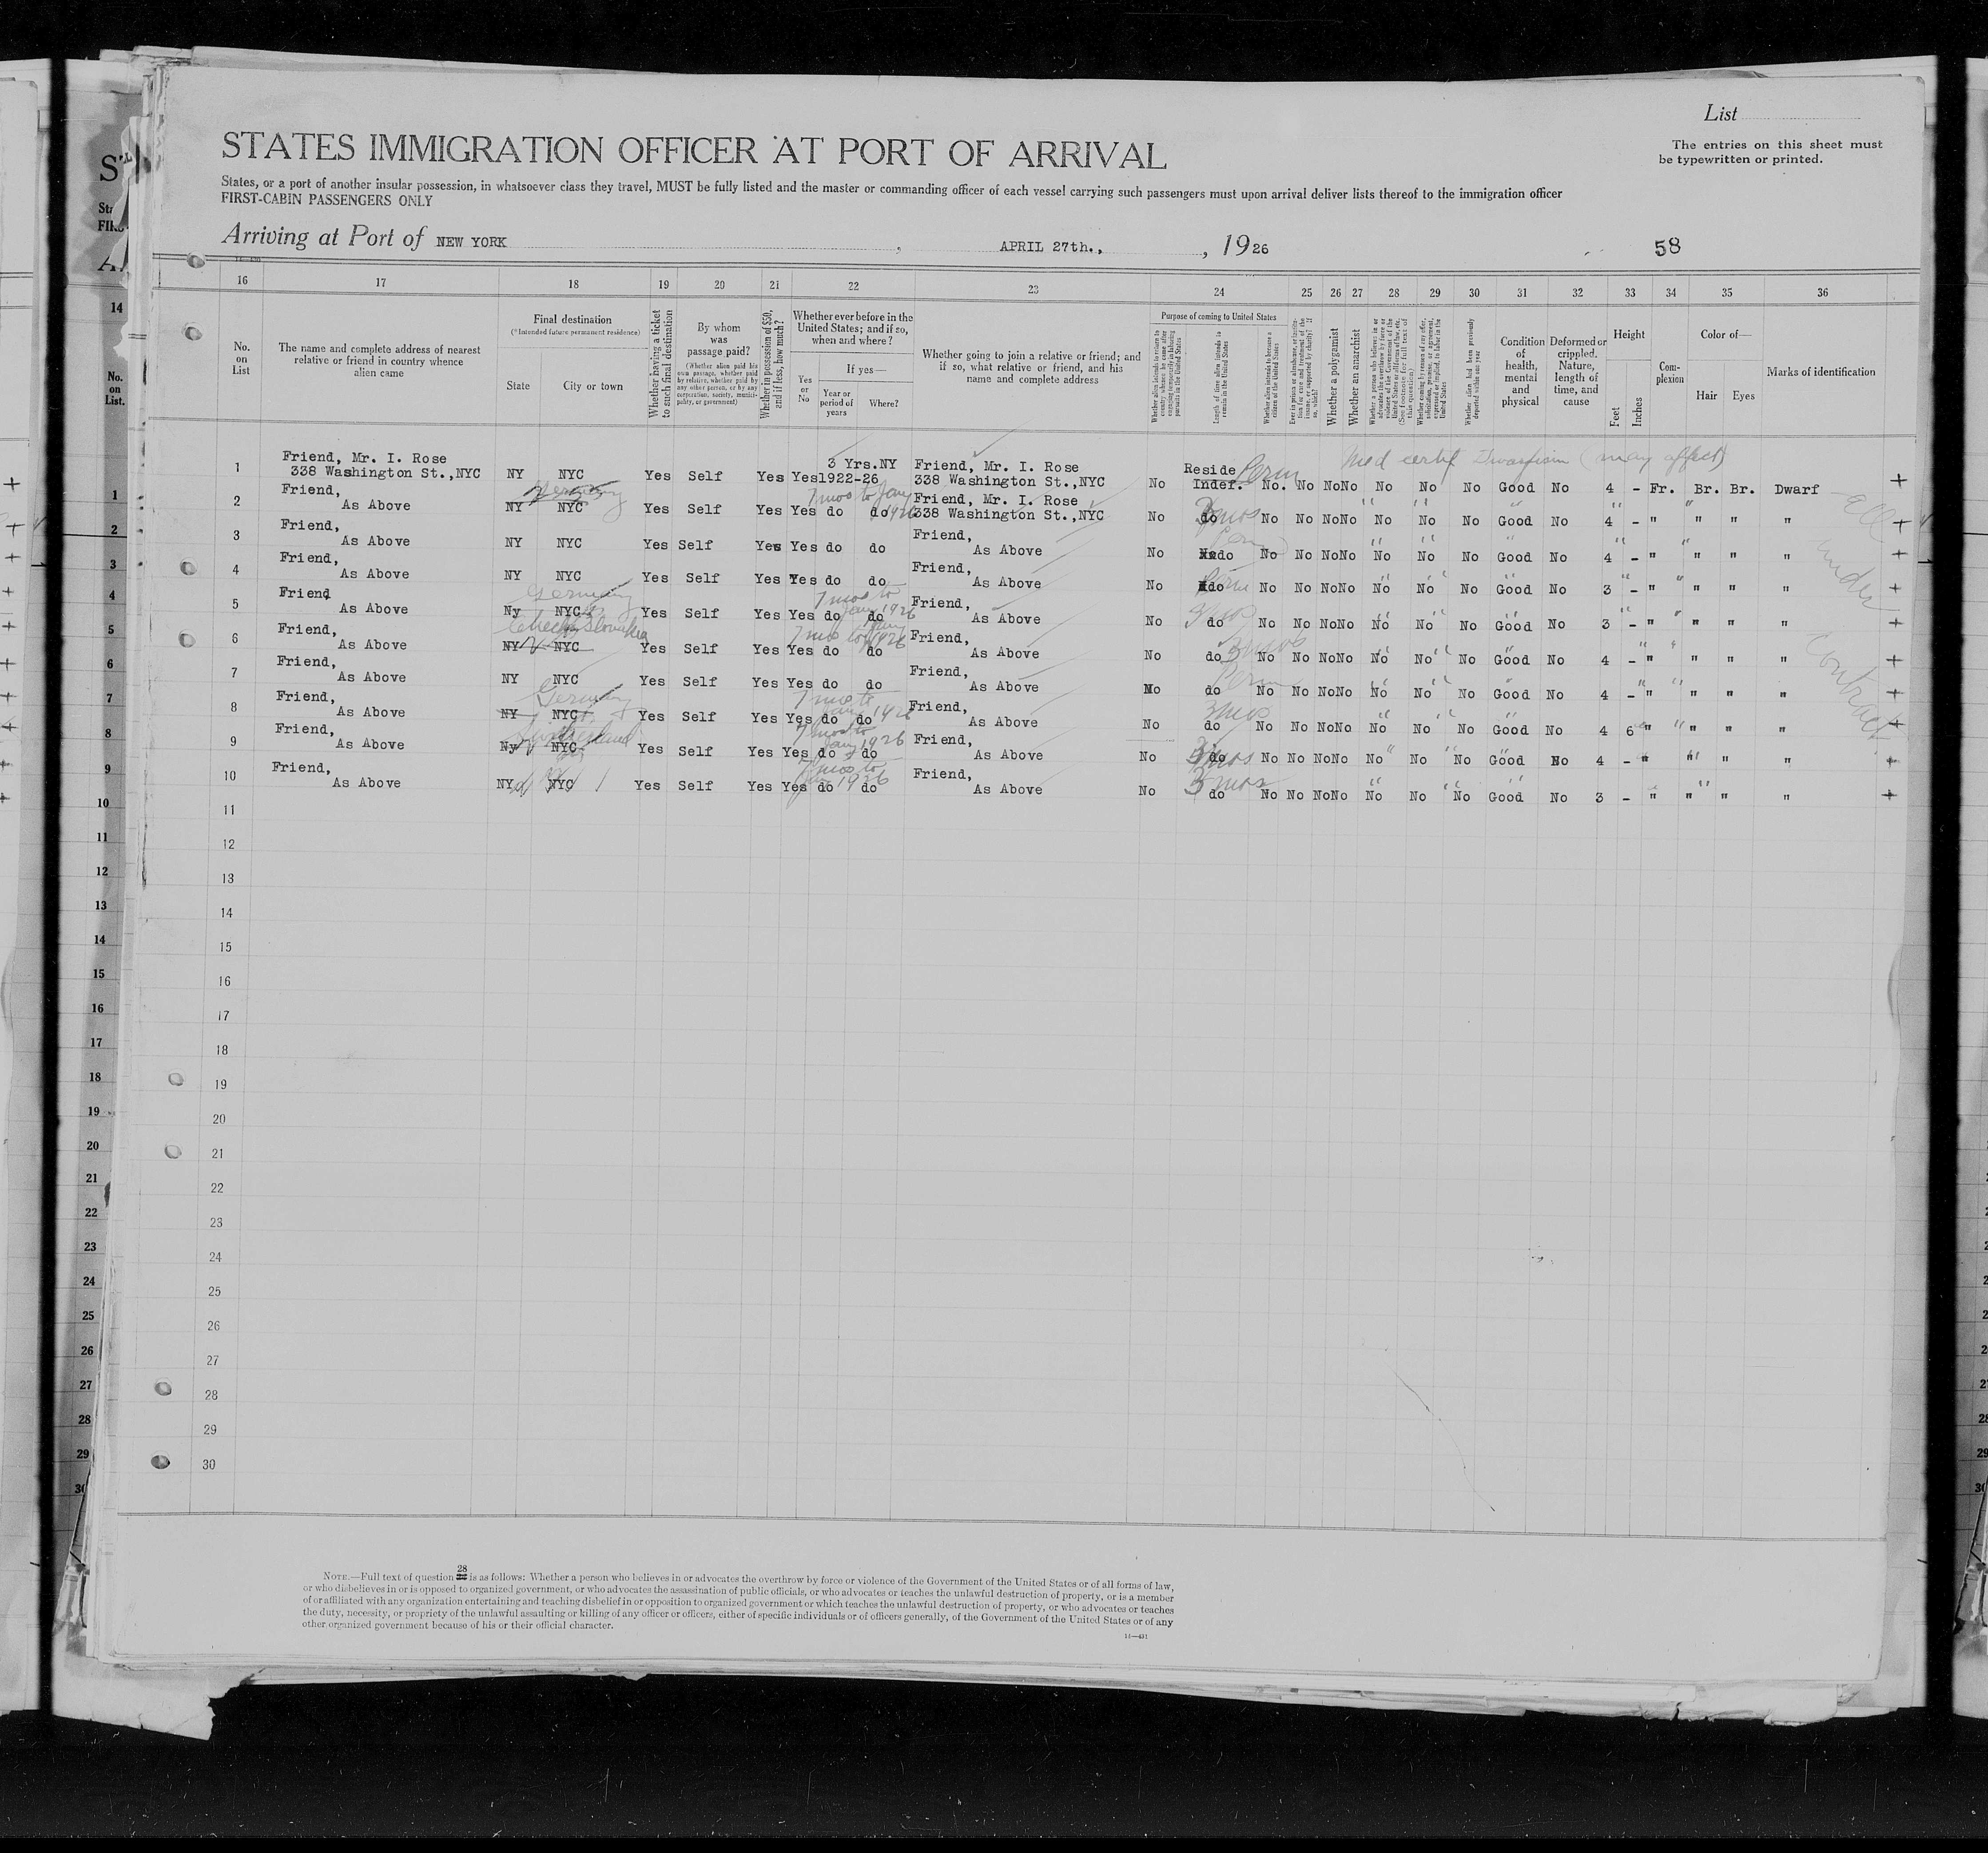 List
The entries on this sheet must
be typewritten or printed.
STATES IMMIGRATION OFFICER AT PORT OF ARRIVAL
States, or a port of another insular possession, in whatsoever class they travel, MUST be fully listed and the master or commanding officer of each vessel carrying such passengers must upon arrival deliver lists thereof to the immigration officer
FIRST-CABIN PASSENGERS ONLY
Arriving at Port of NEW YORK, APRIL 27th., , 1926 58
16 17 18 19 20 21 22 23 24 25 26 27 28 29 30 31 32 33 34 35 36
No. on List
The name and complete address of nearest relative or friend in country whence alien came
Final destination
(*Intended future permanent residence)
State
City or town
Whether having a ticket to such final destination
By whom was passage paid?
(Whether alien paid his own passage, whether paid by relative, whether paid by any other person, or by any corporation, society, municipality, or government)
Whether in possession of $50, and if less, how much?
Whether ever before in the United States; and if so, when and where?
Yes or No
If yes—
Year or period of years
Where?
Whether going to join a relative or friend; and if so, what relative or friend, and his name and complete address
Purpose of coming to United States
Length of time alien intends to remain in the United States
Whether a polygamist
Whether an anarchist
Condition of health, mental and physical
Deformed or crippled. Nature, length of time, and cause
Height
Feet
Inches
Complexion
Color of—
Hair
Eyes
Marks of identification
Med certif Dwarfism (may affect)
1 Friend, Mr. I. Rose 338 Washington St.,NYC NY NYC Yes Self Yes Yes 3 Yrs.NY 1922-26 Friend, Mr. I. Rose 338 Washington St.,NYC No Reside Indef. Perm No. No No No No No No Good No 4 - Fr. Br. Br. Dwarf +
2 Friend, As Above NY NYC Germany Yes Self Yes Yes do do 7 mos to Jany 1926 Friend, Mr. I. Rose 338 Washington St.,NYC No do 3mos No No No No No No No Good No 4 - " " " " +
3 Friend, As Above NY NYC Yes Self Yes Yes do do Friend, As Above No do Perm No No No No No No No Good No 4 - " " " " +
4 Friend, As Above NY NYC Yes Self Yes Yes do do Friend, As Above No do Perm No No No No No No No Good No 3 - " " " " +
5 Friend As Above Ny NYC Germany Yes Self Yes Yes do do 7 mos to Jany 1926 Friend, As Above No do 3mos No No No No No No No Good No 3 - " " " " +
6 Friend, As Above NY NYC Checkoslovakia Yes Self Yes Yes do do 7 mos to Jany 1926 Friend, As Above No do 3mos No No No No No No No Good No 4 - " " " " +
7 Friend, As Above NY NYC Yes Self Yes Yes do do Friend, As Above No do Perm No No No No No No No Good No 4 - " " " " +
8 Friend, As Above NY NYC Germany Yes Self Yes Yes do do 7 mos to Jany 1926 Friend, As Above No do 3mos No No No No No No No Good No 4 6 " " " " +
9 Friend, As Above Ny NYC Yes Self Yes Yes do do 7 mos to Jany 1926 Friend, As Above No do 3mos No No No No No No No Good No 4 - " " " " +
10 Friend, As Above NY NYC Yes Self Yes Yes do do 7 mos to Jan 1926 Friend, As Above No do 3 mos No No No No No No No Good No 3 - " " " " +
All under Contract
11
12
13
14
15
16
17
18
19
20
21
22
23
24
25
26
27
28
29
30
NOTE.—Full text of question 28 is as follows: Whether a person who believes in or advocates the overthrow by force or violence of the Government of the United States or of all forms of law,
or who disbelieves in or is opposed to organized government, or who advocates the assassination of public officials, or who advocates or teaches the unlawful destruction of property, or is a member
of or affiliated with any organization entertaining and teaching disbelief in or opposition to organized government or which teaches the unlawful destruction of property, or who advocates or teaches
the duty, necessity, or propriety of the unlawful assaulting or killing of any officer or officers, either of specific individuals or of officers generally, of the Government of the United States or of any
other organized government because of his or their official character.